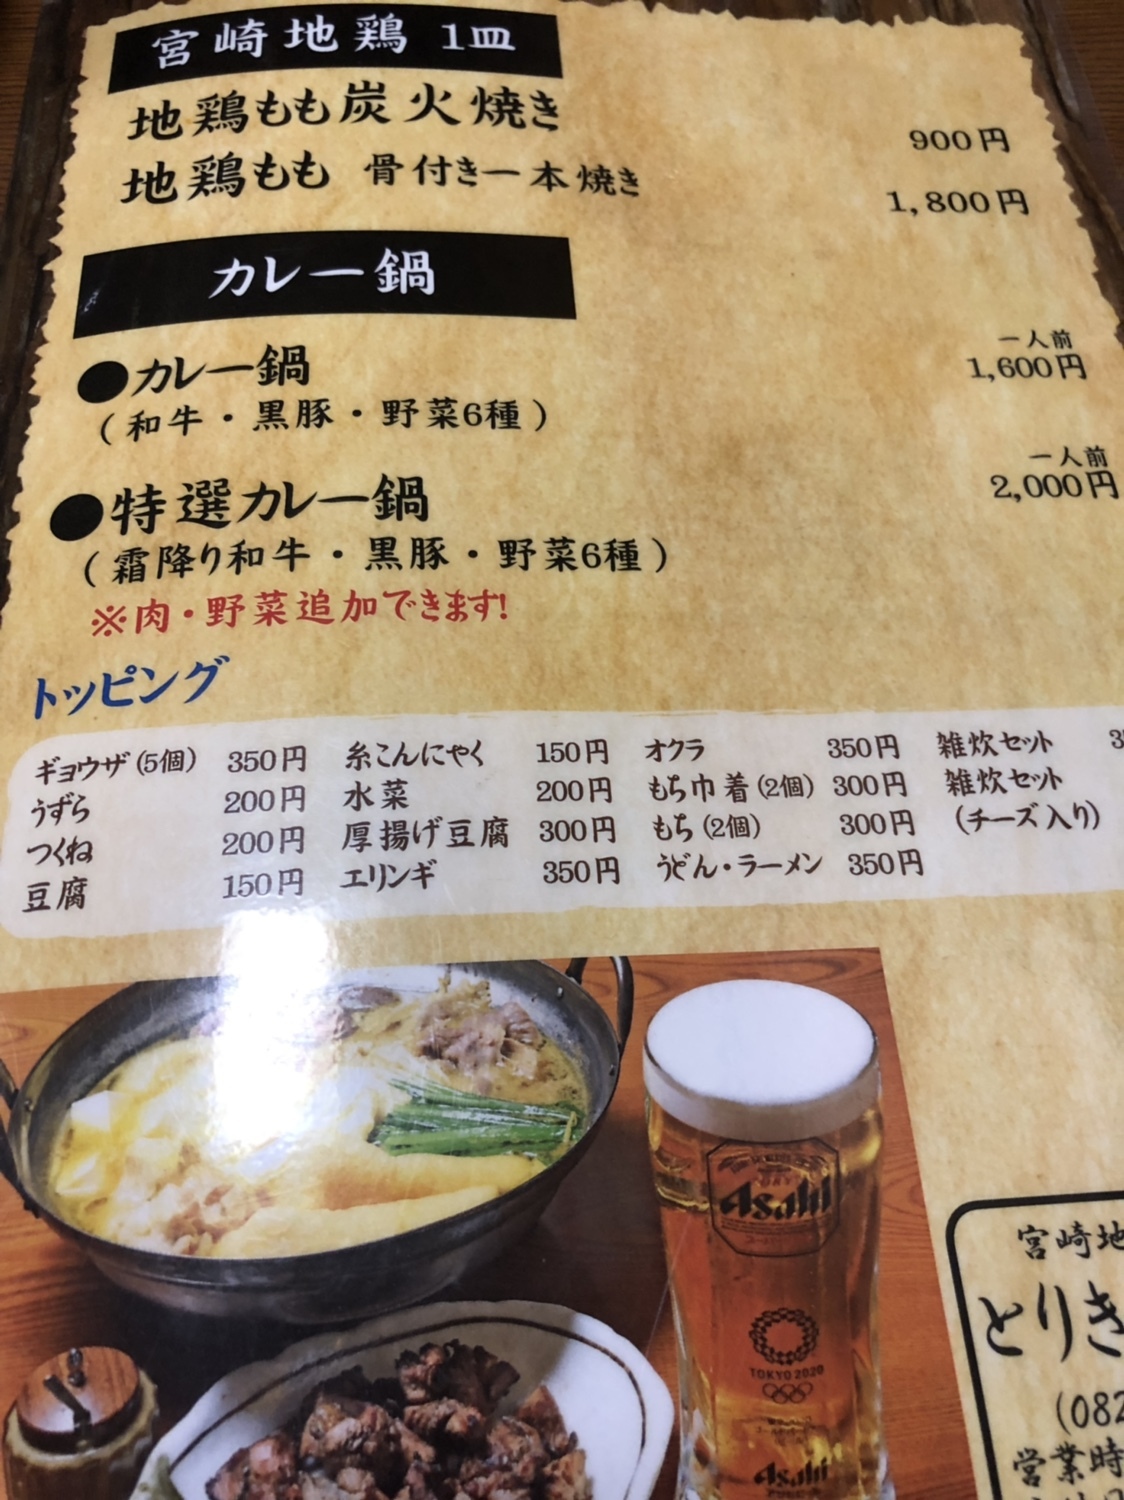 宮崎地鶏 1皿
地鶏もも炭火焼き 900円
地鶏もも 骨付き一本焼き 1,800円
カレー鍋
●カレー鍋 一人前 1,600円
(和牛・黒豚・野菜6種)
●特選カレー鍋 一人前 2,000円
(霜降り和牛・黒豚・野菜6種)
※肉・野菜追加できます!
トッピング
ギョウザ(5個) 350円 糸こんにゃく 150円 オクラ 350円 雑炊セット
うずら 200円 水菜 200円 もち巾着(2個) 300円 雑炊セット
つくね 200円 厚揚げ豆腐 300円 もち(2個) 300円 (チーズ入り)
豆腐 150円 エリンギ 350円 うどん・ラーメン 350円
Asahi
TOKYO 2020
Asahi
宮崎地
とりき
(082
営業時